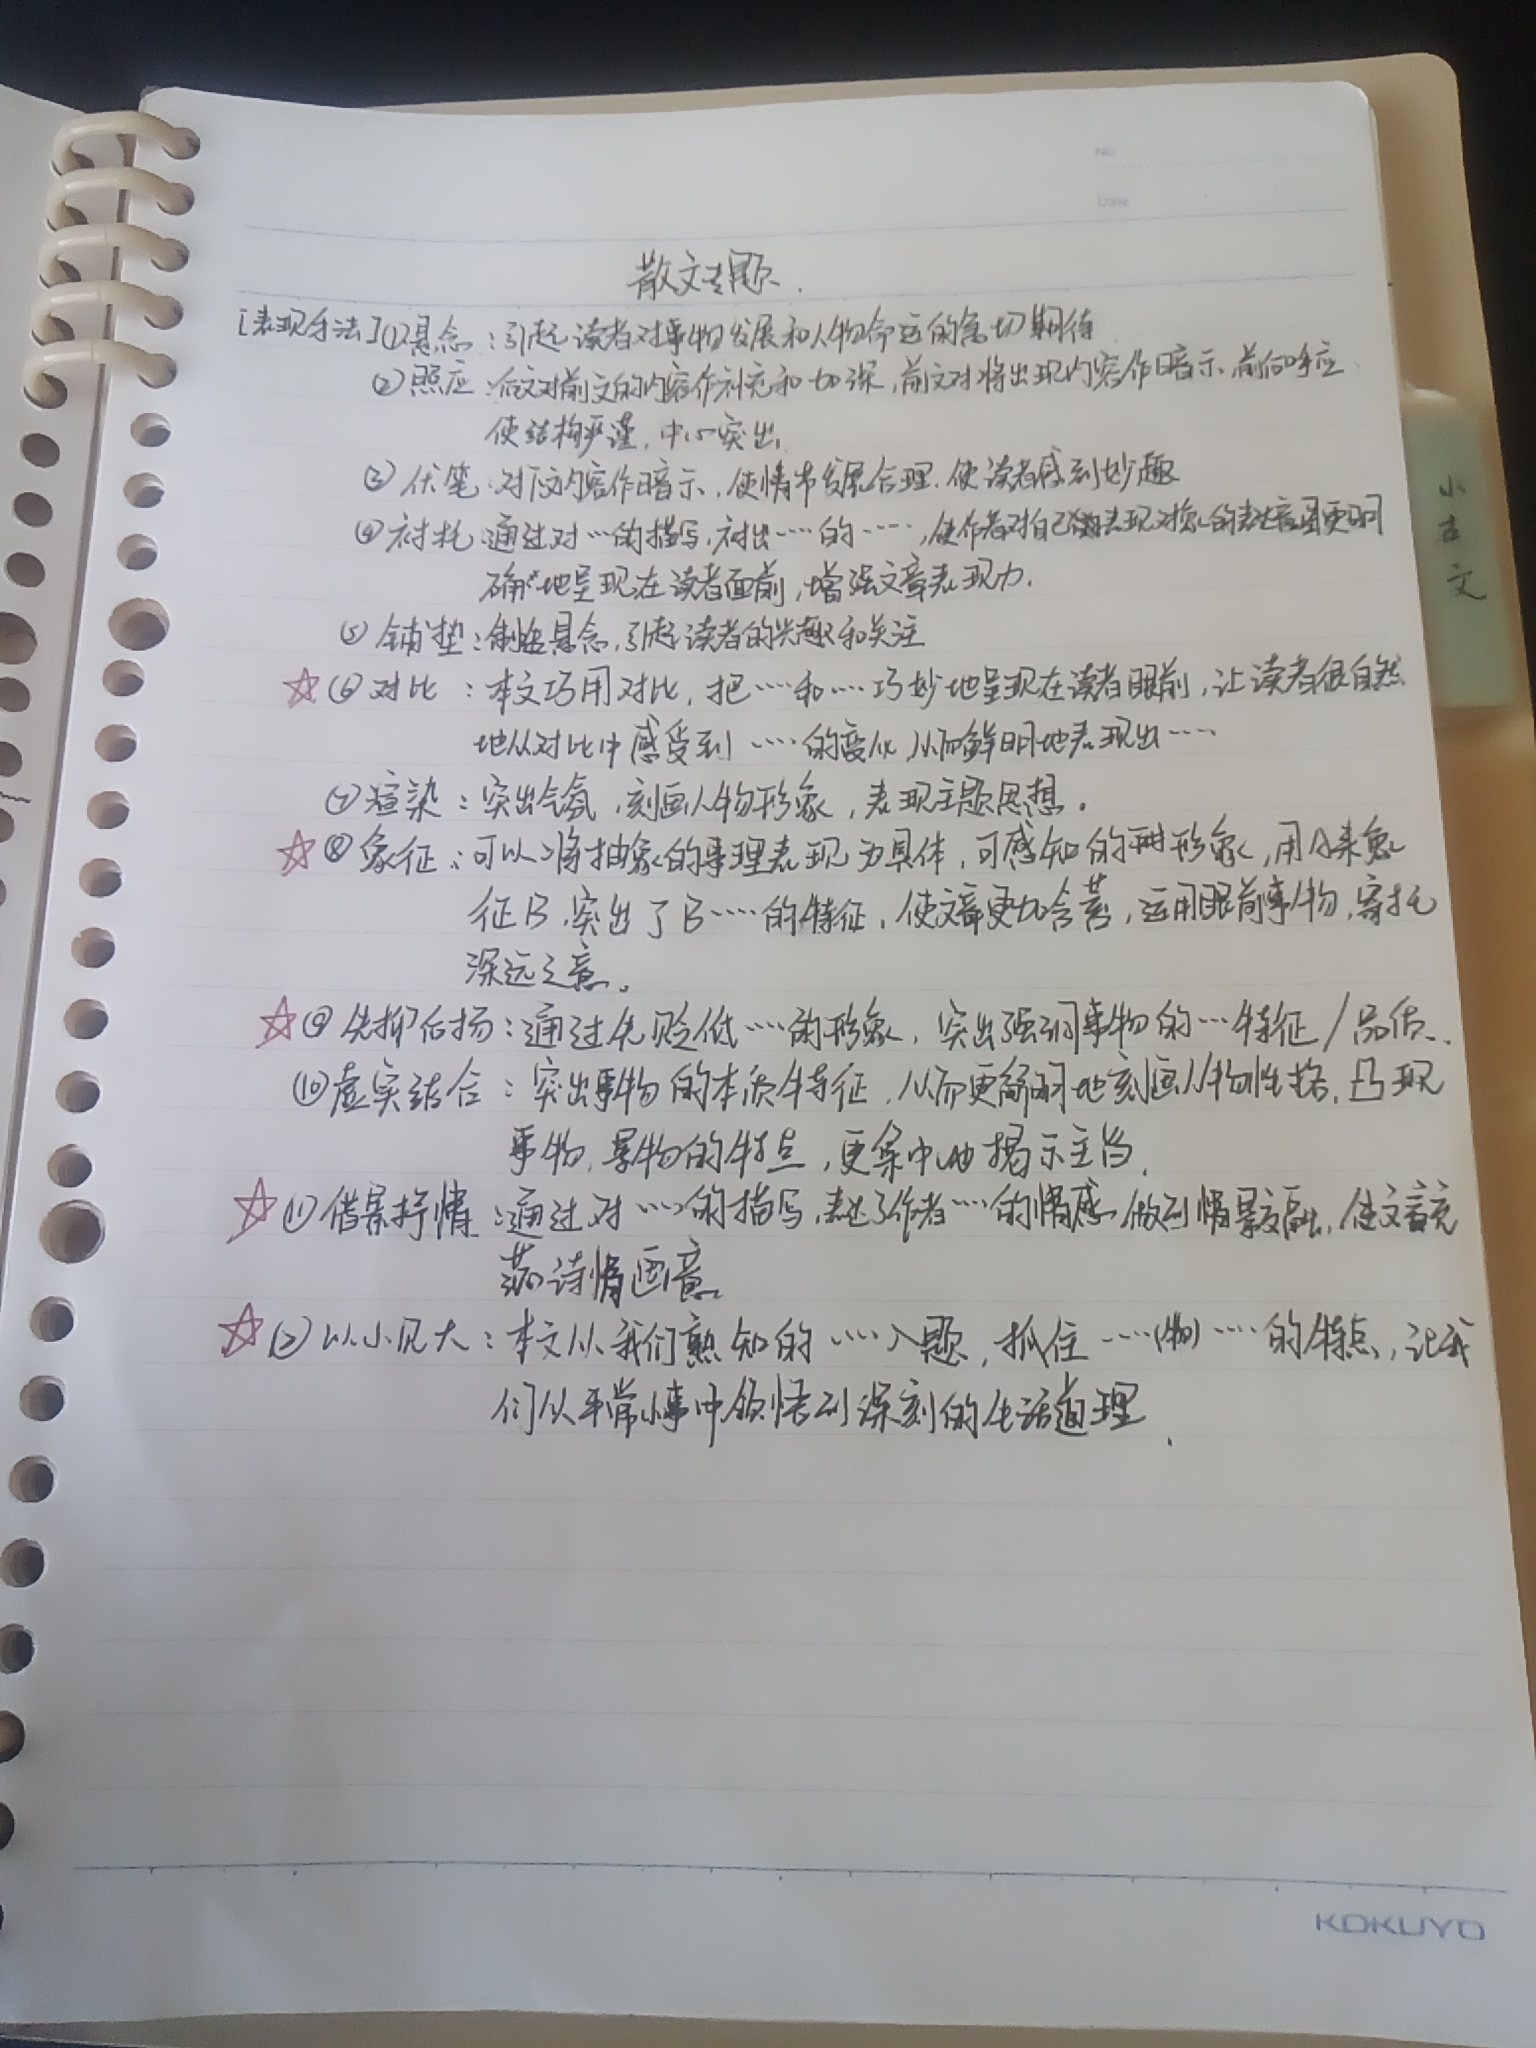 No.
Date
散文专题.
[表现手法]①悬念：引起读者对事物发展和人物命运的急切期待
②照应：后文对前文的内容作补充和加深，前文对将出现内容作暗示，前后呼应
使结构严谨，中心突出.
③伏笔：对下文内容作暗示，使情节发展合理，使读者感到妙趣
④衬托：通过对……的描写，衬出……的……，使作者对自己表现对象的表达意图更明
确地呈现在读者面前，增强文章表现力.
⑤铺垫：制造悬念，引起读者的兴趣和关注
☆⑥对比：本文巧用对比，把……和……巧妙地呈现在读者眼前，让读者很自然
地从对比中感受到……的变化，从而鲜明地表现出……
⑦渲染：突出气氛，刻画人物形象，表现主题思想。
☆⑧象征：可以将抽象的事理表现为具体，可感知的形象，用A来象
征B，突出了B……的特征，使文章更加含蓄，运用眼前事物，寄托
深远之意。
☆⑨先抑后扬：通过先贬低……的形象，突出强调事物的…特征/品质.
⑩虚实结合：突出事物的本质特征，从而更鲜明地刻画人物性格，凸现
事物，景物的特点，更集中地揭示主旨.
☆⑪借景抒情：通过对……的描写，表达了作者……的情感，做到情景交融，使文章充
满诗情画意
☆⑫以小见大：本文从我们熟知的……入题，抓住……(物)……的特点，让我
们从平常小事中领悟到深刻的生活道理.
小古文
KOKUYO